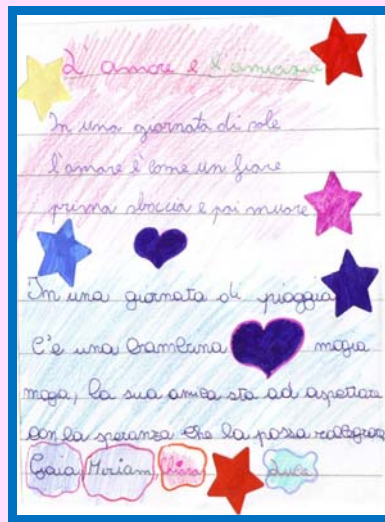 L'amore e l'amicizia
In una giornata di sole
l'amore è come un fiore
prima sboccia e poi muore
In una giornata di pioggia
C'è una bambina mogia
mogia, la sua amica sta ad aspettare
con la speranza che la possa rallegrare
Gaia, Miriam, Chiara Luca